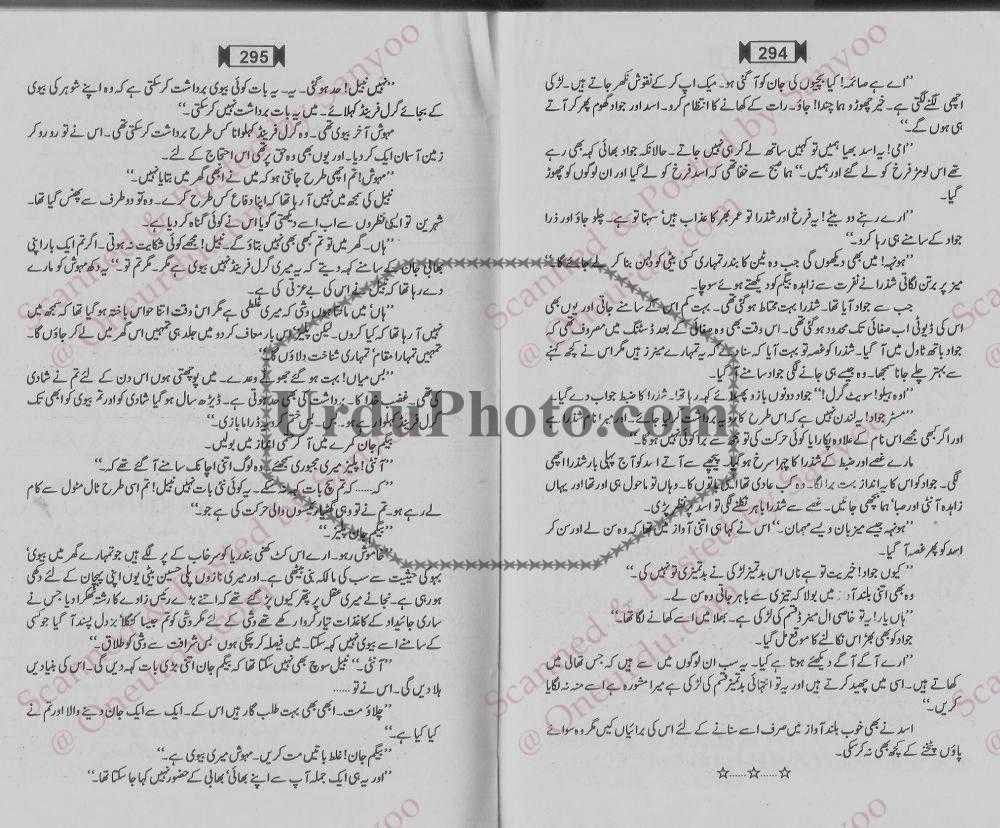 294
”اے ہے صائمہ! کیا بچیوں کی جان کو آ گئی ہو۔ میک اپ کر کے نقوش نکھر جاتے ہیں۔ لڑکی
اچھی لگنے لگتی ہے۔ خیر چھوڑو ہما چندا! جاؤ۔ رات کے کھانے کا انتظام کرو۔ اسد اور جواد گھوم پھر کر آتے
ہی ہوں گے۔“
”امی! یہ اسد بھیا ہمیں تو کہیں ساتھ لے کر ہی نہیں جاتے۔ حالانکہ جواد بھائی کہہ بھی رہے
تھے اس لومڑ فرخ کو لے گئے اور ہمیں۔“ ہما صبح سے خفا تھی کہ اسد فرخ کو لے گیا اور ان لوگوں کو چھوڑ
گیا۔
”ارے رہنے دو بیٹے! یہ فرخ اور شذرا تو عمر بھر کا عذاب ہیں‘ سہنا تو ہے۔ چلو جاؤ اور ذرا
جواد کے سامنے ہی رہا کرو۔“
”ہونہہ! میں بھی دیکھوں گی جب وہ ٹین کا بندر تمہاری کسی بیٹی کو دلہن بنا کر لے جائے گا۔“
میز پر برتن لگاتی شذرا نے نفرت سے زاہدہ بیگم کو دیکھتے ہوئے سوچا۔
جب سے جواد آیا تھا۔ شذرا بہت محتاط ہو گئی تھی۔ بہت کم اس کے سامنے جاتی اور یوں بھی
اس کی ڈیوٹی اب صفائی تک محدود ہو گئی تھی۔ اس وقت بھی وہ صفائی کے بعد ڈسٹنگ میں مصروف تھی کہ
جواد ہاتھ ٹاول میں آ گیا۔ شذرا کو غصہ تو بہت آیا کہ سنا دے کہ یہ تمہارے مینرز ہیں مگر اس نے کچھ کہنے
سے بہتر چلے جانا سمجھا۔ وہ جیسے ہی جانے لگی جواد سامنے آ گیا۔
”اوہ ہیلو! سویٹ گرل!“ جواد دونوں بازو پھیلائے کہہ رہا تھا۔ شذرا کا ضبط جواب دے گیا۔
”مسٹر جواد! یہ لندن نہیں ہے کہ اس طرح کا بیہودہ برداشت کر لیا جائے۔ اور میرا نام شذرا ہے
اور اگر کبھی مجھے اس نام کے علاوہ پکارا یا کوئی حرکت کی تو مجھ سے برا کوئی نہیں ہو گا۔“
مارے غصے اور ضبط کے شذرا کا چہرا سرخ ہو گیا۔ پیچھے سے آتے اسد کو آج پہلی بار شذرا اچھی
لگی۔ جواد کو اس کا یہ انداز بہت برا لگا۔ وہ کب عادی تھا ان باتوں کا۔ وہاں تو ماحول ہی اور تھا اور یہاں
زاہدہ آنٹی اور صبا‘ ہما بچھی جاتیں۔ غصے سے شذرا باہر نکلنے لگی تو اسد پر نظر پڑی۔
”ہونہہ جیسے میزبان ویسے مہمان۔“ اس نے کہا ہی اتنی آواز میں تھا کہ وہ سن لے اور سن کر
اسد کو پھر غصہ آ گیا۔
”کیوں جواد! خیریت تو ہے ناں اس بدتمیز لڑکی نے بدتمیزی تو نہیں کی۔“
وہ بھی اتنی بلند آواز میں بولا کہ تیزی سے باہر جاتی وہ سن لے۔
”ہاں یار! یہ تو خاصی ال مینرڈ قسم کی لڑکی ہے۔ بھلا میں اسے کھانے لگا تھا۔“
جواد کو بھی بھڑاس نکالنے کا موقع مل گیا۔
”ارے آگے آگے دیکھئے ہوتا ہے کیا۔ یہ سب ان لوگوں میں سے ہیں کہ جس تھالی میں
کھاتے ہیں۔ اسی میں چھید کرتے ہیں اور یہ تو انتہائی بدتمیز قسم کی لڑکی ہے میرا مشورہ ہے اسے منہ نہ لگایا
کریں۔“
اسد نے بھی خوب بلند آواز میں صرف اسے سنانے کے لئے اس کی برائیاں کیں مگر وہ سوائے
پاؤں پٹخنے کے کچھ بھی نہ کر سکی۔
☆......☆......☆
295
”نہیں نبیل! حد ہو گئی۔ یہ۔ یہ بات کوئی بیوی برداشت کر سکتی ہے کہ وہ اپنے شوہر کی بیوی
کے بجائے گرل فرینڈ کہلائے۔ میں یہ بات برداشت نہیں کر سکتی۔“
مہوش آخر بیوی تھی۔ وہ گرل فرینڈ کہلوانا کس طرح برداشت کر سکتی تھی۔ اس نے تو رو رو کر
زمین آسمان ایک کر دیا۔ اور یوں بھی وہ حق پر تھی اس احتجاج کے لئے۔
”مہوش! تم اچھی طرح جانتی ہو کہ میں نے ابھی گھر میں بتایا نہیں۔“
نبیل کی سمجھ میں نہیں آ رہا تھا کہ اپنا دفاع کس طرح کرے۔ وہ تو دو طرف سے پھنس گیا تھا۔
شہرین تو ایسی نظروں سے اب اسے دیکھتی گویا اس نے کوئی گناہ کر دیا ہے۔
”ہاں۔ گھر میں تو تم کبھی بھی نہیں بتاؤ گے۔ نبیل! مجھے کوئی شکایت نہ ہوتی۔ اگر تم ایک بار اپنی
بھابی جان کے سامنے کہہ دیتے کہ یہ میری گرل فرینڈ نہیں بیوی ہے مگر۔ مگر تم تو۔“ یہ دکھ مہوش کو مارے
دے رہا تھا کہ نبیل نے اس کی بے عزتی کی ہے۔
”ہاں‘ میں مانتا ہوں وشی کہ میری غلطی ہے مگر اس وقت اتنا حواس باختہ ہو گیا تھا کہ سمجھ میں
نہیں آ رہا تھا کہ کیا کروں۔ لیکن پلیز اس بار معاف کر دو میں جلد ہی تمہیں اس گھر میں لے کر جاؤں گا۔
تمہیں تمہارا مقام‘ تمہاری شناخت دلاؤں گا۔“
”بس میاں! بہت ہو گئے جھوٹے وعدے۔ میں پوچھتی ہوں اس دن کے لئے تم نے شادی
کی تھی۔ غضب خدا کا۔ برداشت کی بھی حد ہوتی ہے۔ ڈیڑھ سال ہو گیا شادی کو اور تم بیوی کو ابھی تک
گرل فرینڈ کہلوا رہے ہو۔ بس ختم کرو یہ ڈراما بازی۔“
بیگم جان کمرے میں آ کر انداز میں بولیں۔
”آنٹی! پلیز میری مجبوری سمجھئے۔ وہ لوگ اتنی اچانک سامنے آ گئے تھے کہ۔“
”کہ...... کہ تم سچ بات کہہ دیتے۔ یہ کوئی نئی بات نہیں نبیل! تم اسی طرح ٹال مٹول سے کام
لے رہے ہو۔ تم نے تو وہی والی حرکت کی ہے جو۔“
”بیگم جان پلیز۔“
”خاموش رہو۔ ارے اس کٹ کھنی بندریا کو سرخاب کے پر لگے ہیں جو تمہارے گھر میں بیوی‘
بہو کی حیثیت سے سب کی مالکہ بنی بیٹھی ہے۔ اور میری نازوں پلی حسین بیٹی یوں اپنی پہچان کے لئے دکھی
ہو رہی ہے۔ نجانے میری عقل پر پتھر کیوں پڑ گئے تھے کہ اتنے بڑے رئیس زادے کا رشتہ ٹھکرا دیا جس نے
ساری جائیداد کے کاغذات تیار کروا رکھے تھے وشی کے لئے مگر وشی کو تم جیسا کنگلا‘ بزدل پسند آیا جو کسی
کے سامنے اسے بیوی نہیں کہہ سکتا۔ میں فیصلہ کر چکی ہوں بس شرافت سے وشی کو طلاق۔“
”آنٹی۔“ نبیل سوچ بھی نہیں سکتا تھا کہ بیگم جان اتنی بڑی بات کہہ دیں گی۔ اس کی بنیادیں
ہلا دیں گی۔ اس نے تو......
”چلاؤ مت۔ ابھی بھی بہت طلب گار ہیں اس کے۔ ایک سے ایک جان دینے والا اور تم نے
کیا کیا ہے۔“
”بیگم جان! غلط باتیں مت کریں۔ مہوش میری بیوی ہے۔“
”اور یہ ہی ایک جملہ آپ سے اپنے بھائی‘ بھابی کے حضور نہیں کہا جا سکتا تھا۔“
UrduPhoto.com
Scanned & Posted by Sanyoo
@ Oneurdu.com